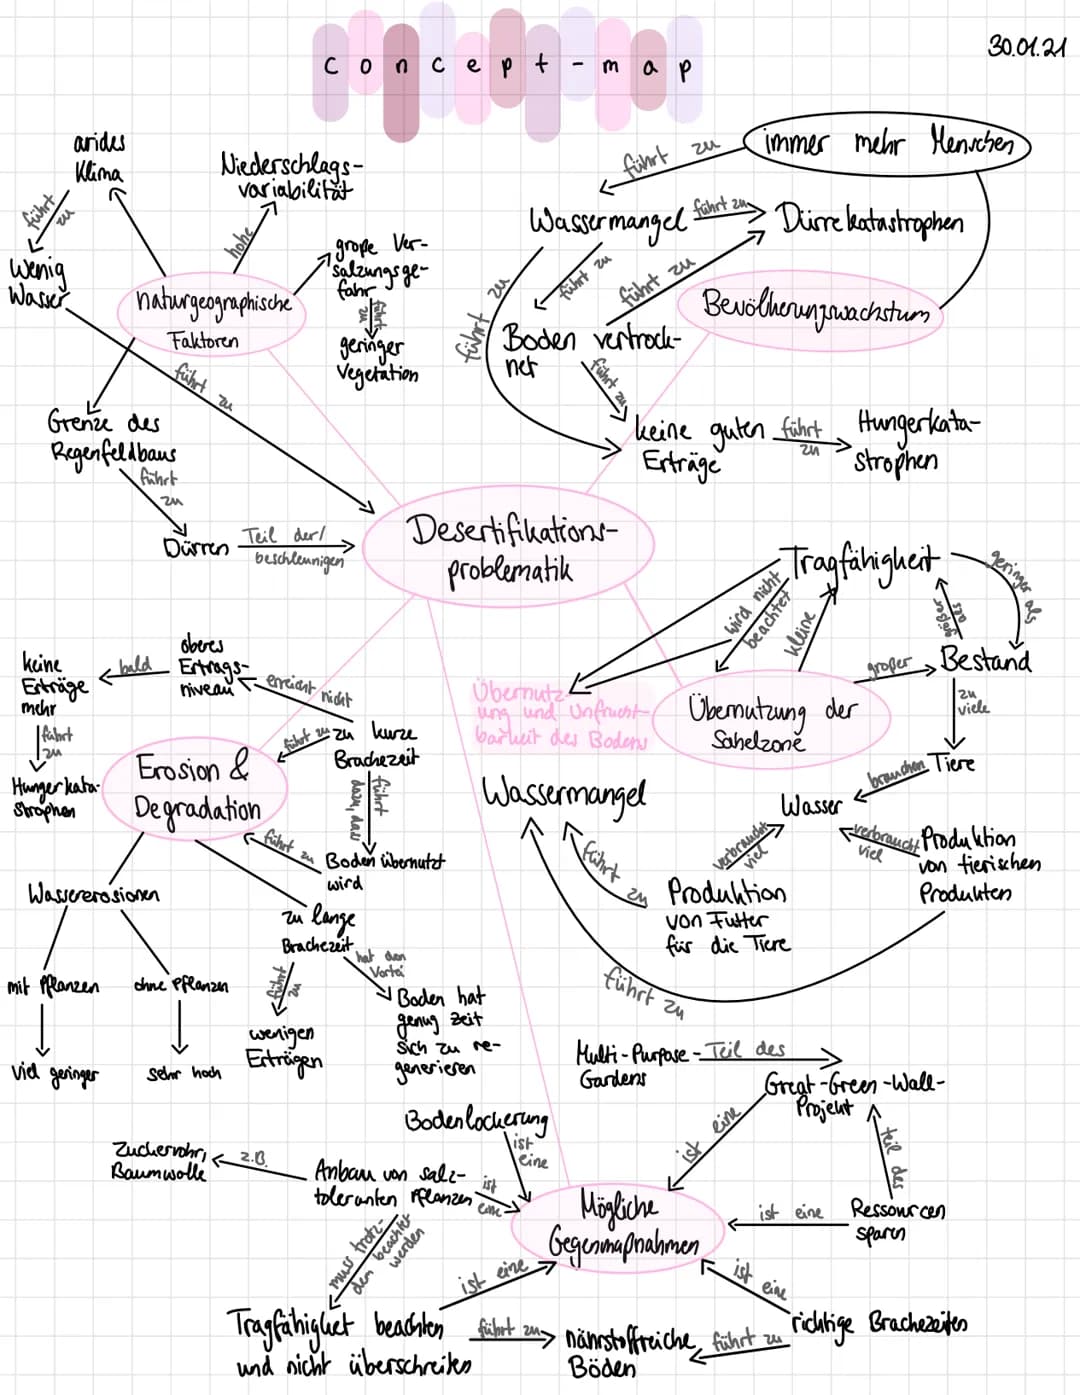 concept-map
30.01.21
immer mehr Menschen
führt zu
Wassermangel
führt zu
Dürrekatastrophen
führt zu
führt zu
führt zu
Boden vertrock-
net
führt zu
keine guten
Erträge
führt
zu
Hungerkata-
strophen
Bevölkerungswachstum
arides
Klima
führt
zu
Wenig
Wasser
führt zu
Niederschlags-
variabilität
hohe
große Ver-
salzungsge-
fahr
führt
zu
geringer
Vegetation
naturgeographische
Faktoren
Grenze des
Regenfeldbaus
führt
zu
Dürren
Teil der/
beschleunigen
Desertifikations-
problematik
Tragfähigkeit
geringer als
größer
als
wird nicht
beachtet
kleine
großer
Bestand
zu
viele
Tiere
brauchen
Wasser
verbraucht
viel
verbraucht
viel
Produktion
von tierischen
Produkten
Produktion
von Futter
für die Tiere
führt zu
führt zu
Wassermangel
Übernutz-
ung und Unfrucht-
barkeit des Bodens
Übernutzung der
Sahelzone
oberes
Ertrags-
niveau
bald
keine
Erträge
mehr
führt
zu
Hungerkata-
strophen
erreicht nicht
zu kurze
Brachezeit
führt zu
führt
dazu, dass
Boden übernutzt
wird
führt zu
Erosion &
Degradation
Wassererosionen
mit Pflanzen
ohne Pflanzen
viel geringer
sehr hoch
zu lange
Brachezeit
führt
zu
wenigen
Erträgen
hat den
Vorteil
Boden hat
genug Zeit
sich zu re-
generieren
Multi-Purpose-
Gardens
Teil des
Great-Green-Wall-
Projekt
ist eine
teil des
Ressourcen
sparen
ist eine
Bodenlockerung
ist
eine
Zuckerrohr,
Baumwolle
z.B.
Anbau von salz-
toleranten Pflanzen
ist
eine
muss trotz-
dem beachtet
werden
Mögliche
Gegenmaßnahmen
ist eine
ist
eine
Tragfähigkeit beachten
und nicht überschreiten
führt zu
nährstoffreiche
Böden
führt zu
richtige Brachezeiten